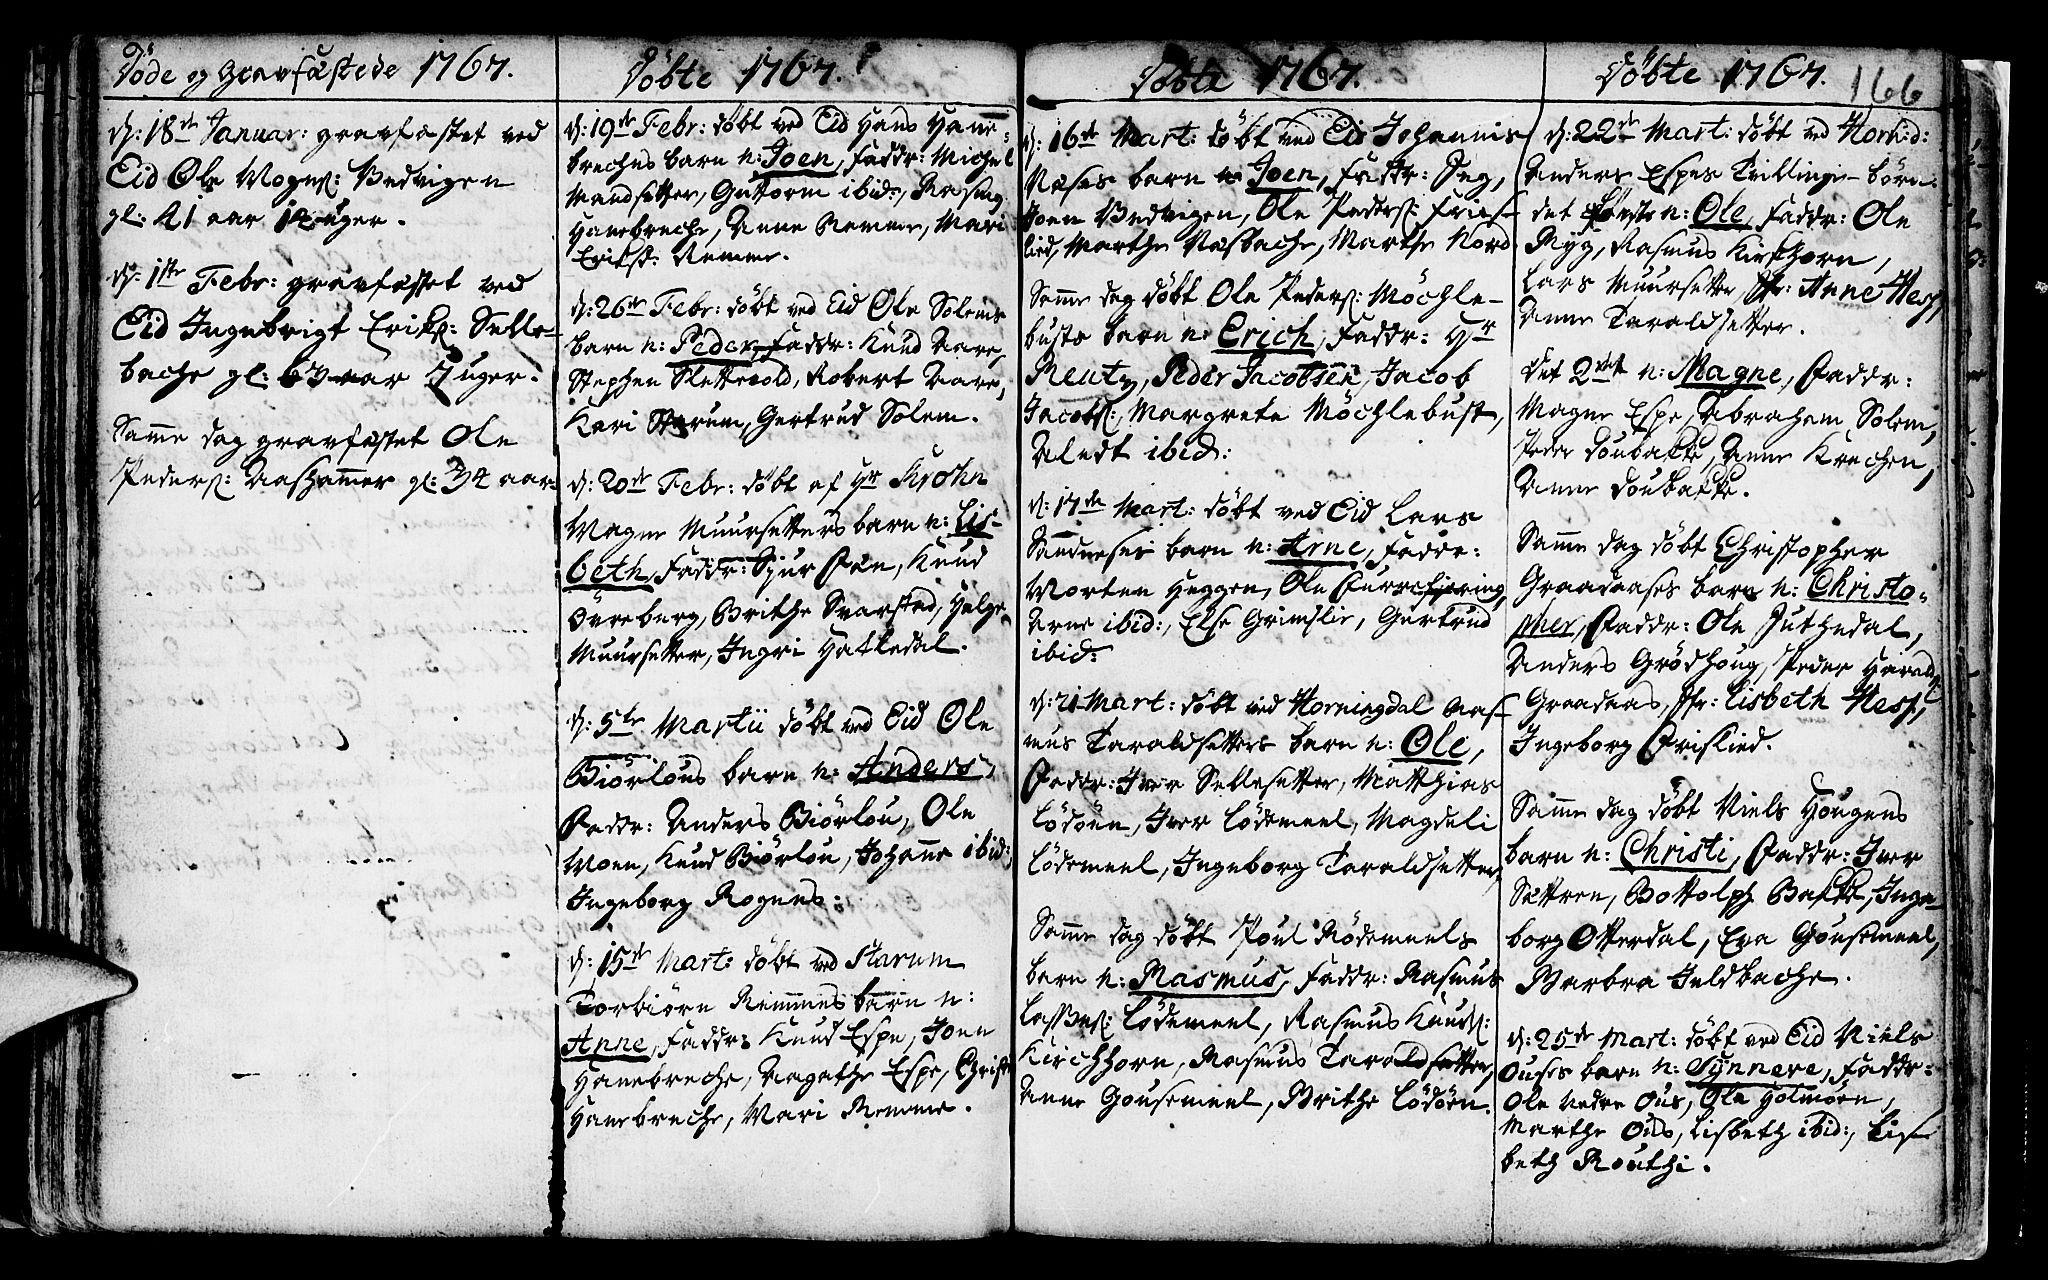 Döde og Gravfæstede 1767.
d: 18de Januar: gravfæstet ved
Eid Ole Mogns: Vedvigen
gl: 41 aar 12 uger.
d: 1ste Febr: gravfæstet ved
Eid Ingebrigt Eriks: Selle-
bache gl: 63 aar 7 uger.
Samme dag gravfæstet Ole
Peders: Aashammer gl: 34 aar
Döbte 1767.
d: 19de Febr: döbt ved Eid Hans Hane-
breches barn n: Joen, Faddr: Michel
Mandsetter, Guttorm ibid:, Rasmus
Hanebreche, Anne Remme, Mari
Eriksd: Remme.
d: 26de Febr: döbt ved Eid Ole Solems
barn n: Peder, Faddr: Knud Aare,
Stephen Slettevold, Robert Aare,
Kari Starum, Gertrud Solem.
d: 20de Febr: döbt af Hr Krohn
Magne Muursetters barn n: Lis-
beth, Faddr: Siur Fæn, Knud
Övreberg, Brithe Svarstad, Helge
Muursetter, Ingri Hatledal.
d: 5te Martii döbt ved Eid Ole
Biörlous barn n: Anders,
Faddr: Anders Biörlou, Ole
Moen, Knud Biörlou, Johanne ibid:,
Ingeborg Rognes:
d: 15de Mart: döbt ved Starum
Torbiörn Remmes barn n:
Anne, Faddr: Knud Espe, Joen
Hanebreche, Aagathe Espe, Christi
Hanebreche, Mari Remme.
Döbte 1767.
d: 16de Mart: döbt ved Eid Johannis
Næses barn n: Joen, Faddr: Jeg,
Joen Vedvigen, Ole Peders: Fris-
lied, Marthe Næsbache, Marthe Nord
Samme dag döbt Ole Peders: Möchle-
busts barn n: Erich, Faddr: Hr
Reutz, Peder Jacobsen, Jacob
Jacobs:, Margrete Möchlebust,
Aledt ibid:
d: 17de Mart: döbt ved Eid Lars
Sandneses barn n: Arne, Faddr:
Morten Heggen, Ole Furrefiering,
Arne ibid:, Else Grimslie, Gertrud
ibid:
d: 21 Mart: döbt ved Horningdal Ras-
mus Taraldsetters barn n: Ole,
Faddr: Iver Sellesetter, Matthias
Lödöen, Iver Lödemeel, Magdeli
Lödemeel, Ingeborg Taraldsetter,
Samme dag döbt Poul Rödemeels
barn n: Rasmus, Faddr: Rasmus
Lasses: Lödemeel, Rasmus Knuds:
Kirchhorn, Rasmus Taraldsetter,
Anne Gousemeel, Brithe Lödöen.
Döbte 1767.
166
d: 22de Mart: döbt ved Horn:d:
Anders Espes Tvillinge-börn.
det förste n: Ole, Faddr: Ole
Ryg, Rasmus Kirkhorn,
Lars Muursetter, Jfr: Anne Hess,
Anne Taraldsetter.
Det 2det n: Magne, Faddr:
Magne Espe, Abraham Solem,
Peder Doubakke, Anne Krechen,
Anne Doubakke.
Samme dag döbt Christopher
Graadaases barn n: Christo-
pher, Faddr: Ole Juthedal,
Anders Grödhoug, Peder Haralds:
Graadaas, Jfr: Lisbeth Hess,
Ingeborg Frislied.
Samme dag döbt Niels Hougens
barn n: Christi, Faddr: Iver
Sættren, Bottolph Bakke, Inge-
borg Otterdal, Eva Gousemeel,
Barbra Indbache.
d: 25de Mart: döbt ved Eid Niels
Ouses barn n: Synneve, Faddr:
Ole Nedre Ous, Ole Holmöen,
Marthe Ous, Lisbeth ibid:, Lis-
beth Routhi.